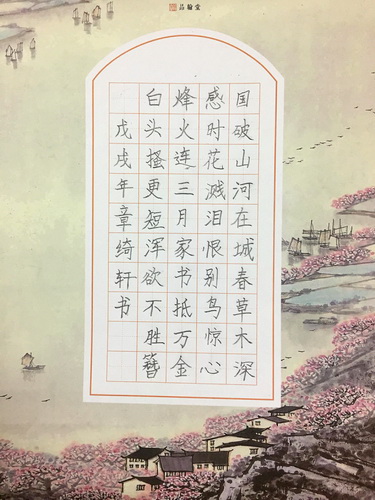 品翰堂
国破山河在城春草木深
感时花溅泪恨别鸟惊心
烽火连三月家书抵万金
白头搔更短浑欲不胜簪
戊戌年章绮轩书